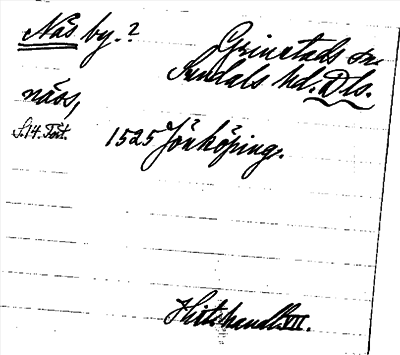 Näs by.?
Grinstads sn.
Sundals hd. Dls.
näs,
S.14. Fört. 1525 Jönköping.
Hist. handl. VII.